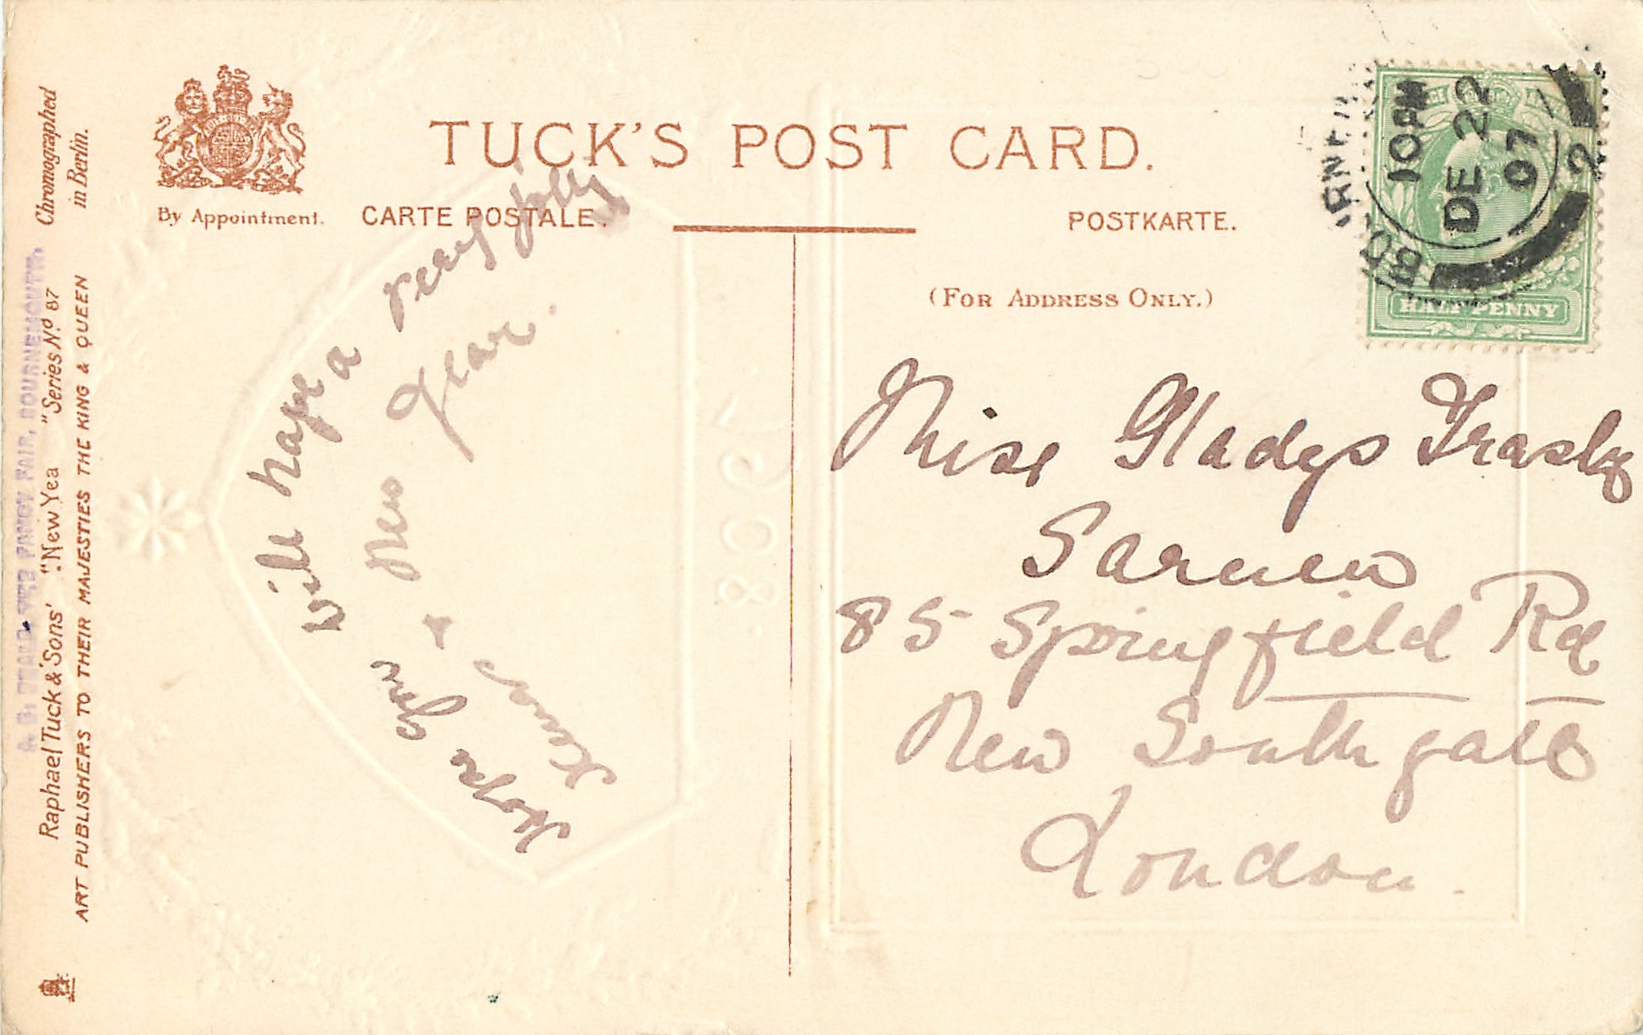 TUCK'S POST CARD.
By Appointment.
CARTE POSTALE.
POSTKARTE.
(FOR ADDRESS ONLY.)
Chromographed
in Berlin.
FANCY FAIR, BOURNEMOUTH.
Raphael Tuck & Sons' "New Yea " Series No 87
ART PUBLISHERS TO THEIR MAJESTIES THE KING & QUEEN
10 PM
DE 22
07
2
HALF PENNY
1908
Hope you will have a very jolly
Xmas & New Year.
Miss Gladys
85 Springfield Rd
New Southgate
London.